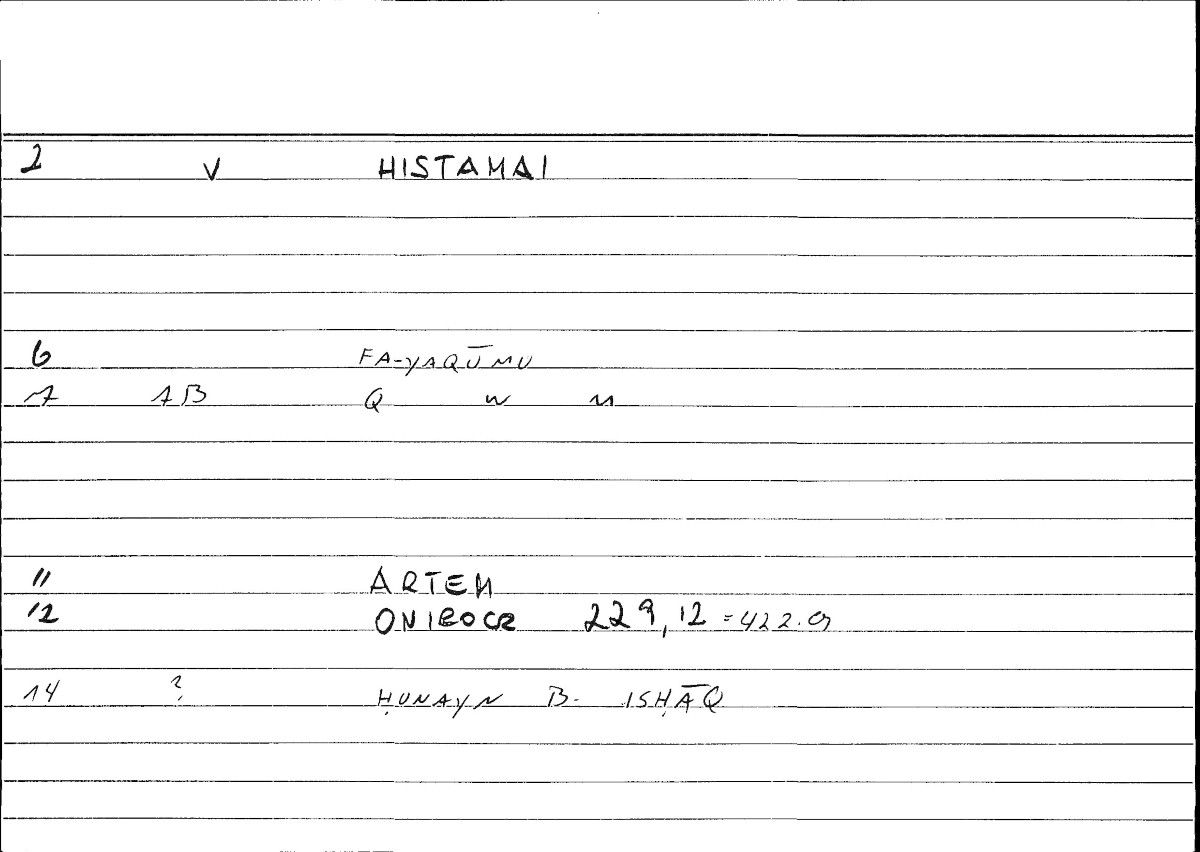 2 V HISTAMAI
6 FA-YAQŪMU
7 1B Q W M
11 ARTEM
12 ONIROCR 229,12 = 422.9
14 ? ḤUNAYN B. ISḤĀQ